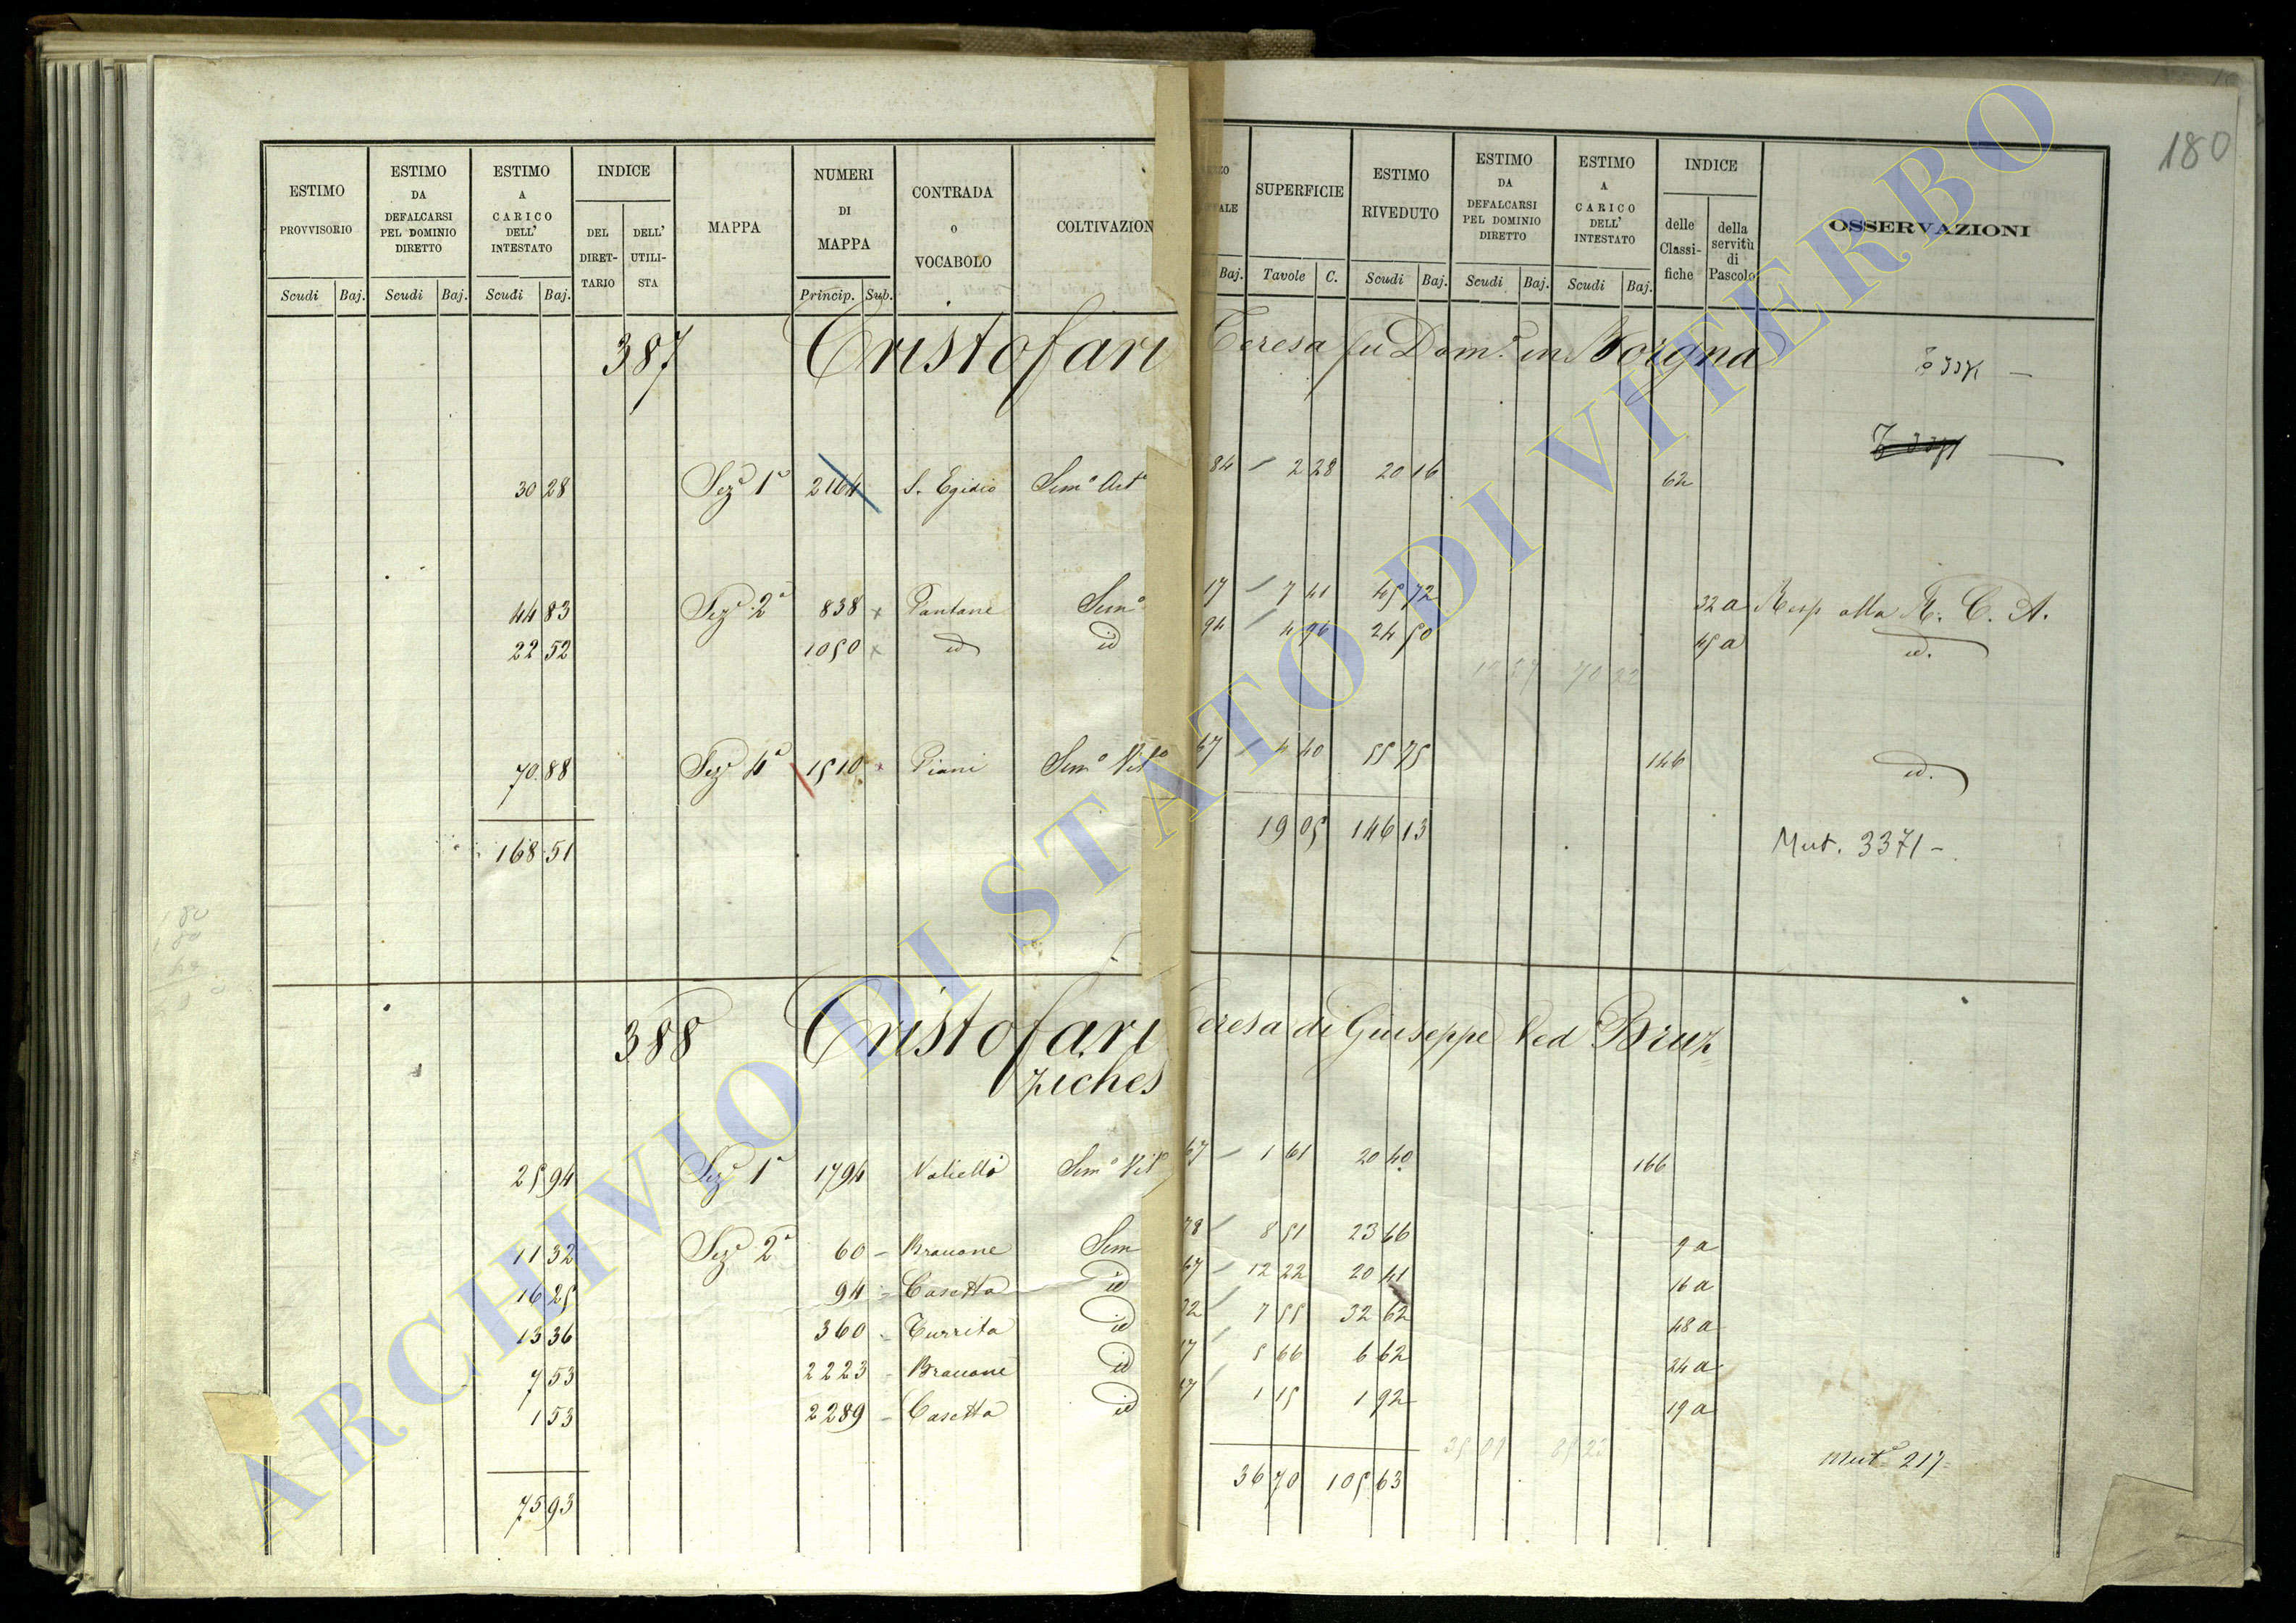 180
ESTIMO PROVVISORIO Scudi Baj.
ESTIMO DA DEFALCARSI PEL DOMINIO DIRETTO Scudi Baj.
ESTIMO A CARICO DELL' INTESTATO Scudi Baj.
INDICE DEL DIRET-TARIO DELL' UTILI-STA
MAPPA
NUMERI DI MAPPA Princip. Sub.
CONTRADA o VOCABOLO
COLTIVAZION
Baj.
SUPERFICIE Tavole C.
ESTIMO RIVEDUTO Scudi Baj.
ESTIMO DA DEFALCARSI PEL DOMINIO DIRETTO Scudi Baj.
ESTIMO A CARICO DELL' INTESTATO Scudi Baj.
INDICE delle Classi-fiche della servitù di Pascolo
OSSERVAZIONI
387 Cristofari Teresa fu Dom.º in
30 28 Sezᵉ 1ª 2164 S. Egidio Semº Artº 84 2 28 20 16 62
44 83 Sezᵉ 2ª 838 x Pantane Semº 17 7 41 45 72 32 a Resp alla R. C. A.
22 52 1050 x id id 94 4 96 24 50 45 a id.
70 88 Sezᵉ 4ª 1510 x Piani Semº Vitº 67 4 40 55 75 146 id.
168 51 19 05 146 13 Mut. 3371 -
388 Cristofari Teresa di Giuseppe Ved Bruz
ziches
25 94 Sezᵉ 1ª 1794 Semº Vitº 67 1 61 20 40 166
11 32 Sezᵉ 2ª 60 - Sem 78 8 51 23 66 9 a
16 25 94 - Casetta id 67 12 22 20 41 16 a
13 36 360 - Turrita id 32 7 55 32 62 48 a
7 53 2223 - id 5 66 6 62 24 a
1 53 2289 - Casetta id 1 15 1 92 19 a
75 93 36 70 105 63 Mutª 217
ARCHIVIO DI STATO DI VITERBO